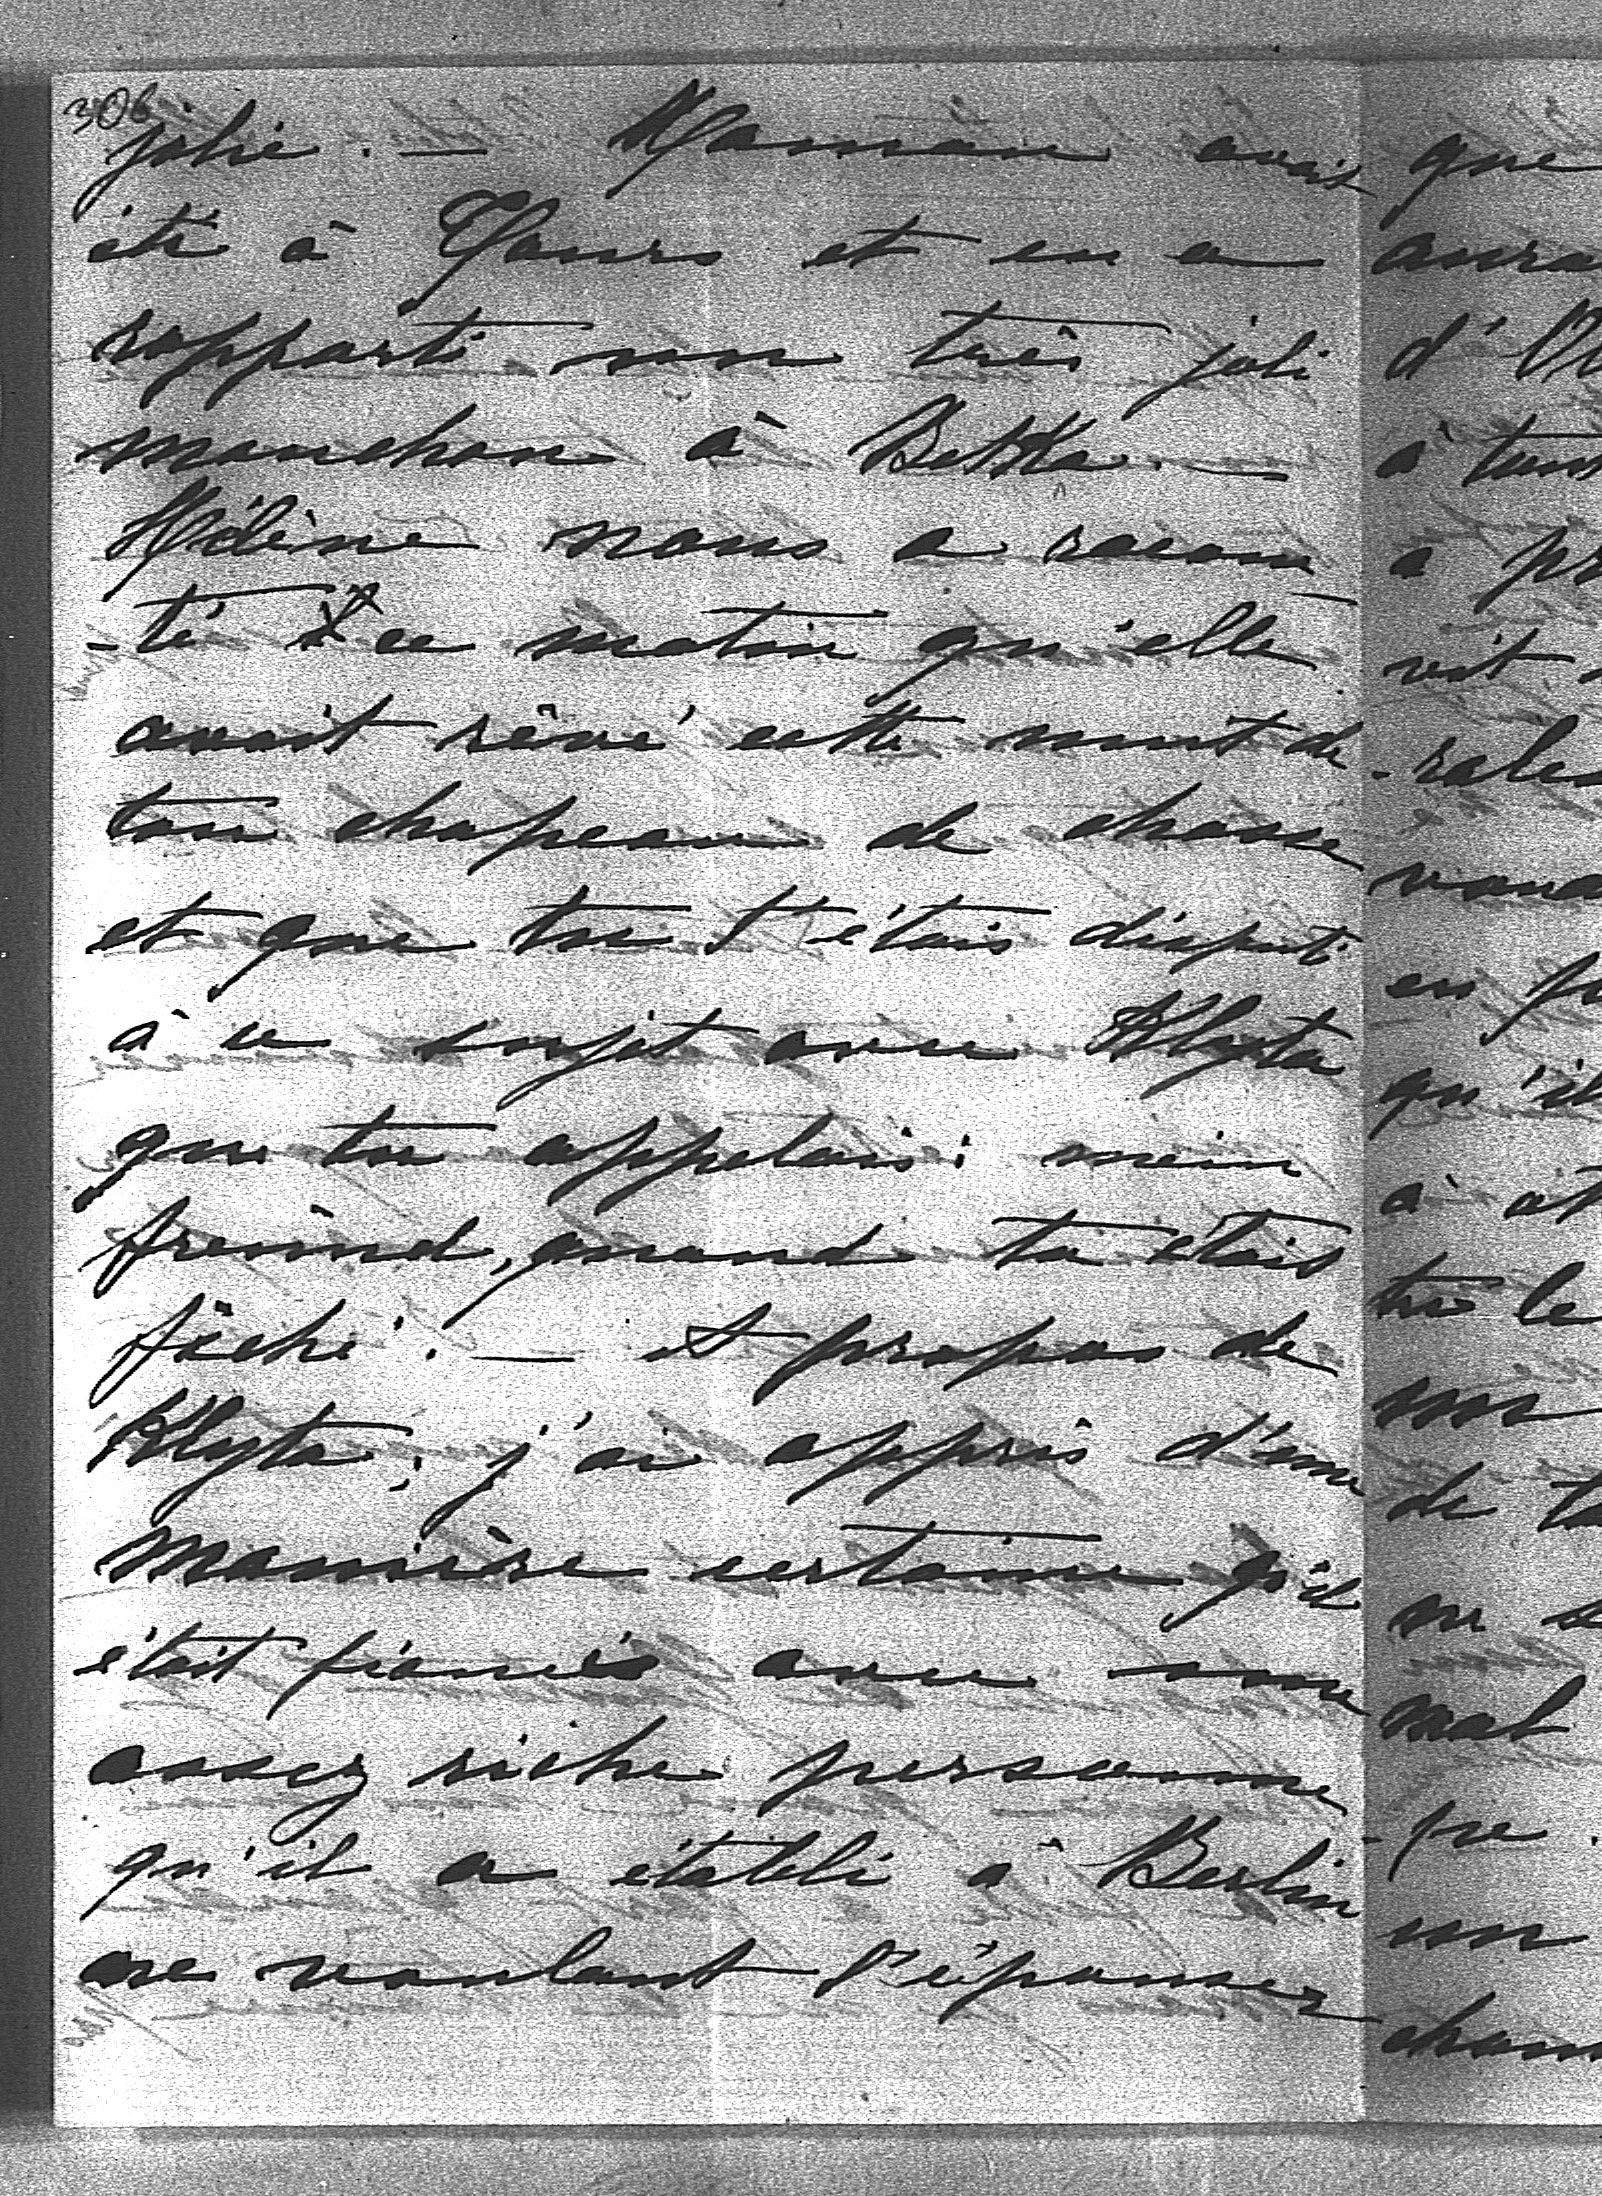 306
jolie. — Maman avait
été à Tours et en a
rapporté un très joli
manchon à Betka. —
Hélène nous a racon-
-té ce matin qu'elle
avait rêvé cette nuit de
ton chapeau de chasse
et que tu t'étais disputé
à ce sujet avec Klyta
que tu appelais: mein
freünd, quand tu étais
fâché. — A propos de
Klyta, j'ai appris d'une
manière certaine qu'il
était fiancés avec une
assez riche personne
qu'il a établi à Berlin
ne voulant l'épouser
que
d'
à
a
vit
en
qu'il
à
tu le
un
de
mal
un